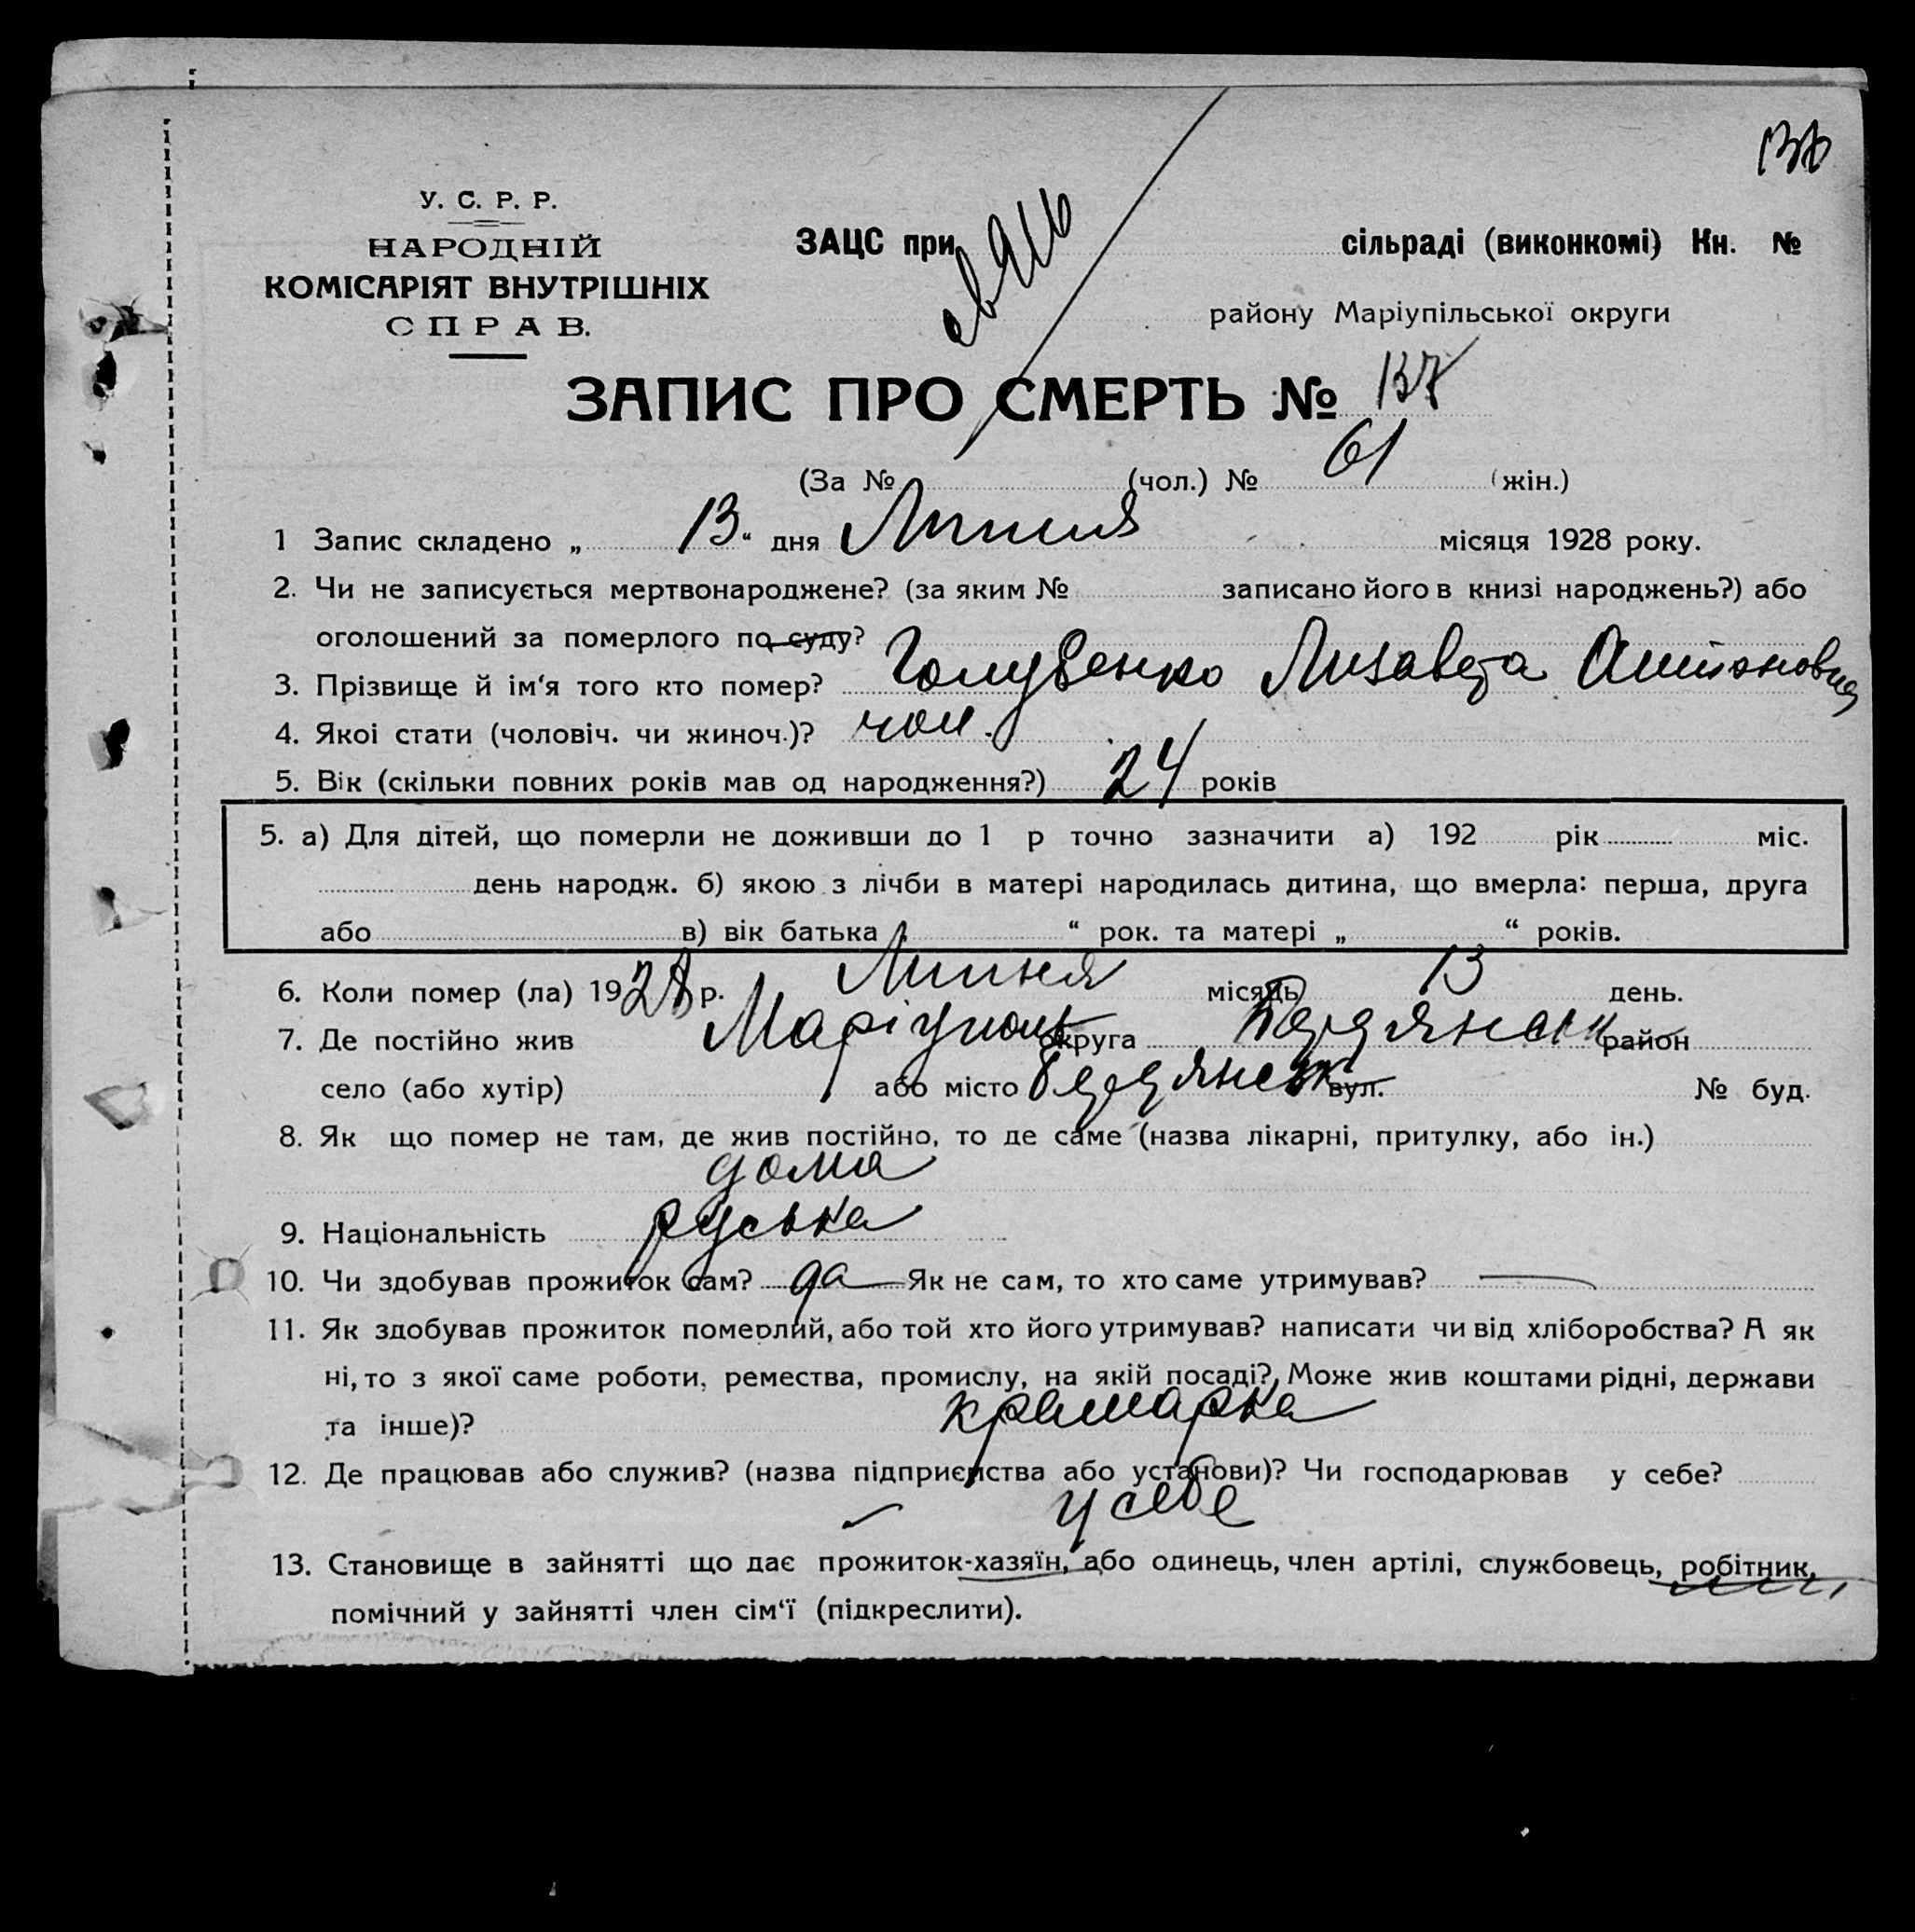 136
У. С. Р. Р.
НАРОДНІЙ
КОМІСАРІЯТ ВНУТРІШНІХ
СПРАВ.
ЗАЦС при сільраді (виконкомі) Кн. №
району Маріупільської округи
ЗАПИС ПРО СМЕРТЬ № 137
(За № (чол.) № 61 (жін.)
1 Запис складено „ 13 “ дня Липня місяця 1928 року.
2. Чи не записується мертвонароджене? (за яким № записано його в книзі народжень?) або
оголошений за померлого по суду?
3. Прізвище й ім‘я того кто помер? Голубенко Лизавета Антоновна
4. Якоі стати (чоловіч. чи жиноч.)?
5. Вік (скільки повних років мав од народження?) 24 років
5. а) Для дітей, що померли не доживши до 1 р точно зазначити а) 192 рік міс.
день народж. б) якою з лічби в матері народилась дитина, що вмерла: перша, друга
або в) вік батька „ “ рок. та матері „ “ років.
6. Коли помер (ла) 1928 р. Липня місяць 13 день.
7. Де постійно жив Маріуполь округа Бердянськ район
село (або хутір) або місто Бердянськ вул. № буд.
8. Як що помер не там, де жив постійно, то де саме (назва лікарні, притулку, або ін.)
дома
9. Національність руська
10. Чи здобував прожиток сам? да Як не сам, то хто саме утримував? —
11. Як здобував прожиток померлий, або той хто його утримував? написати чи від хліборобства? А як
ні, то з якої саме роботи, ремества, промислу, на якій посаді? Може жив коштами рідні, держави
та інше)? крамарка
12. Де працював або служив? (назва підприємства або установи)? Чи господарював у себе?
у себе
13. Становище в зайнятті що дає прожиток-хазяїн, або одинець, член артілі, службовець, робітник,
помічний у зайнятті член сім‘ї (підкреслити).